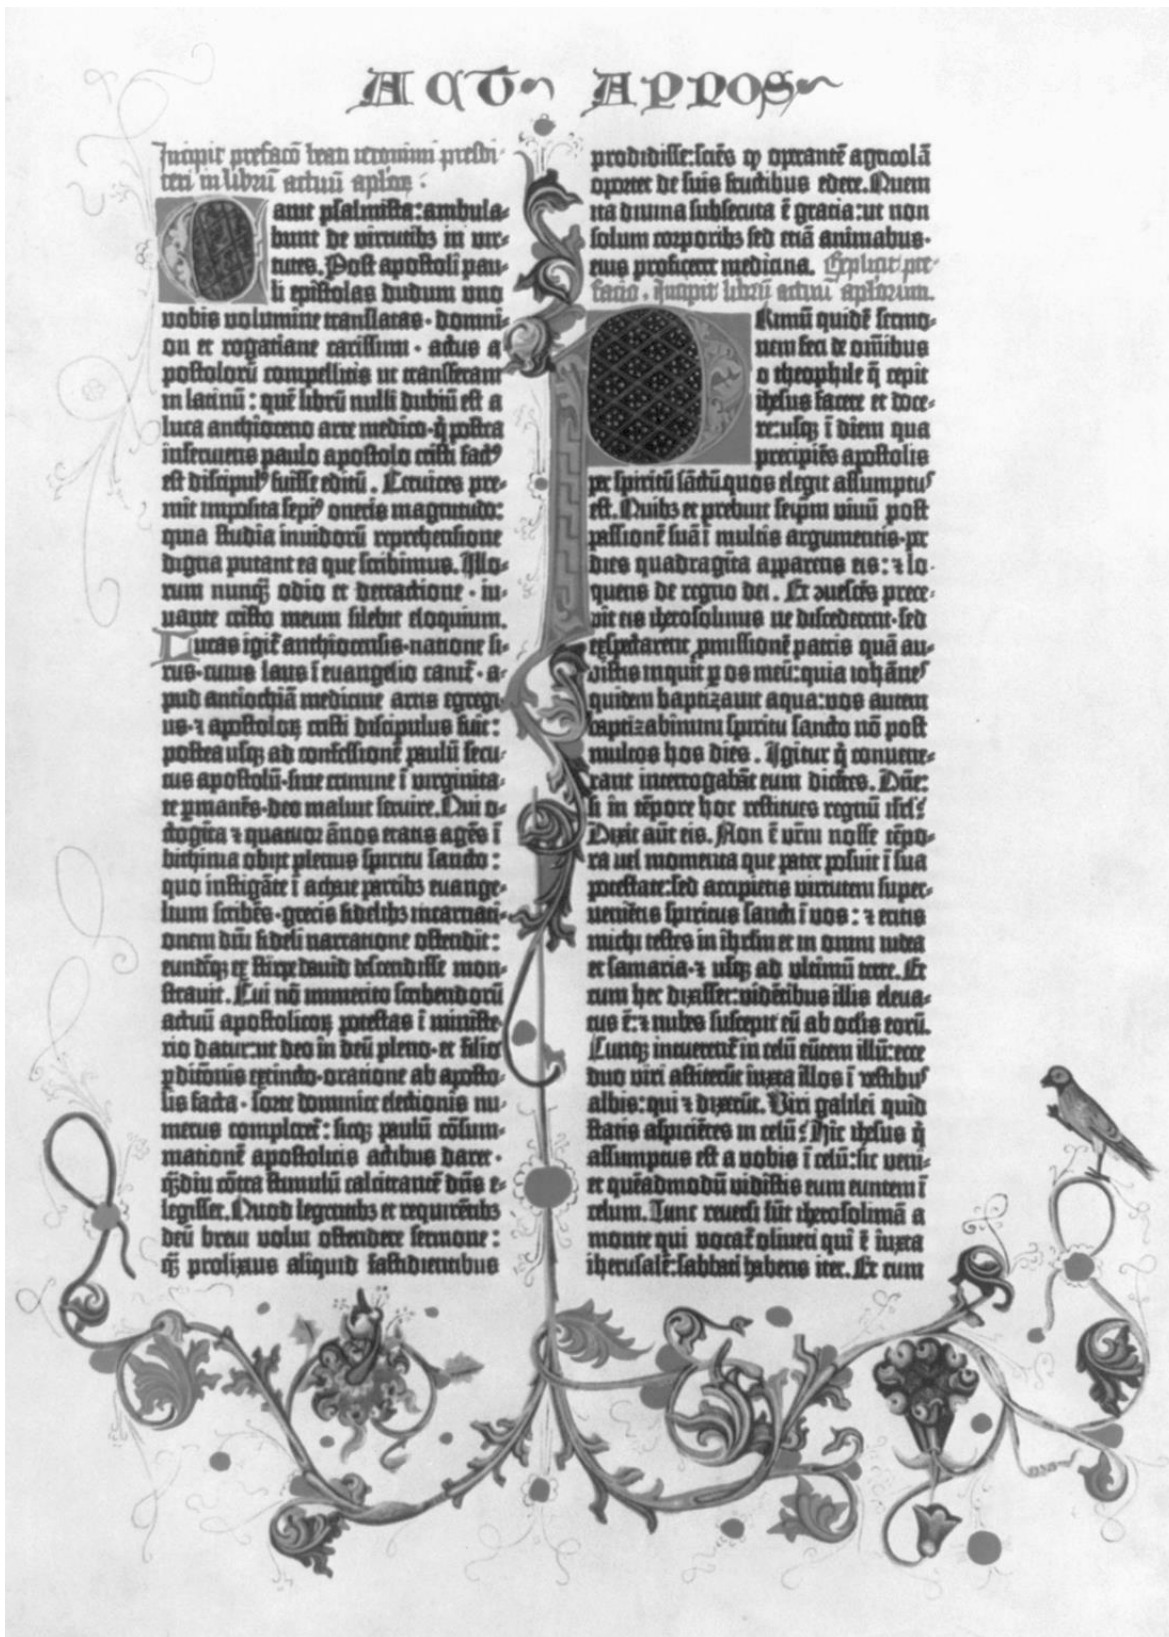 ACT APPOS
Incipit prefacō beati ieronimi presbi-
teri in librū actuū aploꝝ:
Canut psalmista: ambula-
bunt de virtutibꝫ in vir-
tutes. Post apostoli pau-
li epistolas dudum uno
vobis volumine translatas· domni-
on et rogatiane carissimi· actus a
postolorū compellitis ut transferam
in latinū: quē librū nulli dubiū est a
luca anthioceno arte medico· q̄ postea
inserviens paulo apostolo cristi factꝰ
est discipulꝰ fuisse editū. Cervices pre-
mit imposita sepiꝰ oneris magnitudo:
quia studia invidorū reprehensione
digna putant ea que scribimus. Illo-
rum nunqꝫ odio et detractione· iu-
vante cristo meum silebit eloquium.
Lucas igiť anthiocensis· natione si-
rus· cuius laus ī euangelio caniť· a-
pud antiochiā medicine artis egregi-
us· ⁊ apostoloꝝ cristi discipulus fuit:
postea usqꝫ ad confessionē paulū secu-
tus apostolū· sine crimine ī virginita-
te ꝑmanēs· deo maluit servire. Qui o-
ctogīta ⁊ quatuor ānos etatis agēs ī
bithinia obiit plenus spiritu sancto:
quo instigāte ī achaie partibꝫ euange-
lium scribēs· grecis fidelibꝫ incarnati-
onem dn̄i fideli narratione ostendit:
eundēqꝫ ex stirpe david descendisse mon-
stravit. Cui nō immerito scribendorū
actuū apostolicoꝝ potestas ī ministe-
rio datur: ut deo in deū pleno· et filio
ꝑditiōnis extincto· oratione ab aposto-
lis facta· sorte dominice electionis nu-
merus compleret̄: sicqꝫ paulū cōsum-
mationē apostolicis actibus daret·
quē diu cōtra stimulū calcitrantē dn̄s e-
legisset. Quod legentibꝫ et requirētibꝫ
deū brevi volui ostendere sermone:
q̄ꝫ prolixius aliquid fastidientibus
prodidisse: sciēs qꝫ operantē agricolā
oportet de suis fructibus edere. Quem
ita divina subsecuta ē gratia: ut non
solum corporibꝫ sed etiā animabus·
eius proficeret medicina. Explicit pre-
facio. Incipit librū actuū aplorum.
Primū quidē sermo-
nem feci de omībus
o theophile q̄ cepit
ihesus facere et doce-
re: usqꝫ ī diem qua
precipiēs apostolis
per spiritū sāctū quos elegit assumptꝰ
est. Quibꝫ et prebuit seipm̄ vivū post
passionē suā ī multis argumentis· per
dies quadragīta apparens eis: ⁊ lo-
quens de regno dei. Et ꝯvescēs prece-
pit eis iherosolimis ne discederent· sed
expectarent ꝓmissionē patris quā au-
distis inquit ꝑ os meū: quia iohānes
quidem baptizavit aqua: vos autem
baptizabimini spiritu sancto nō post
multos hos dies. Igitur q̄ convene-
rant interrogabāt eum dicētes. Dn̄e:
si in tēpore hoc restitues regnū isrl̄?
Dixit aūt eis. Non ē vr̄m nosse tēpo-
ra vel momenta que pater posuit ī sua
potestate: sed accipietis virtutem super-
venientis spiritus sancti ī vos: ⁊ eritis
michi testes in ihrlm̄ et in omni iudea
et samaria· ⁊ usqꝫ ad ultimū terre. Et
cum hec dixisset: vidētibus illis eleva-
tus ē: ⁊ nubes suscepit eū ab oclis eorū.
Cunqꝫ intuerent̄ in celū eūtem illū: ecce
duo viri astiterūt iuxta illos ī vestibꝰ
albis: qui ⁊ dixerūt. Viri galilei quid
statis aspiciētes in celū? Hic ihesus q̄
assumptus est a vobis ī celū: sic veni-
et quēadmodū vidistis eum euntem ī
celum. Tunc reversi sūt iherosolimā a
monte qui vocat̄ oliveti qui ē iuxta
iherusalē: sabbati habens iter. Et cum